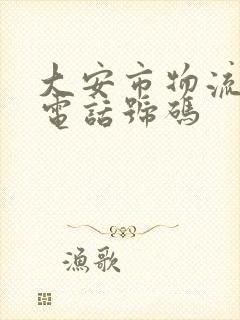 大安市物流
電話號碼
漁歌